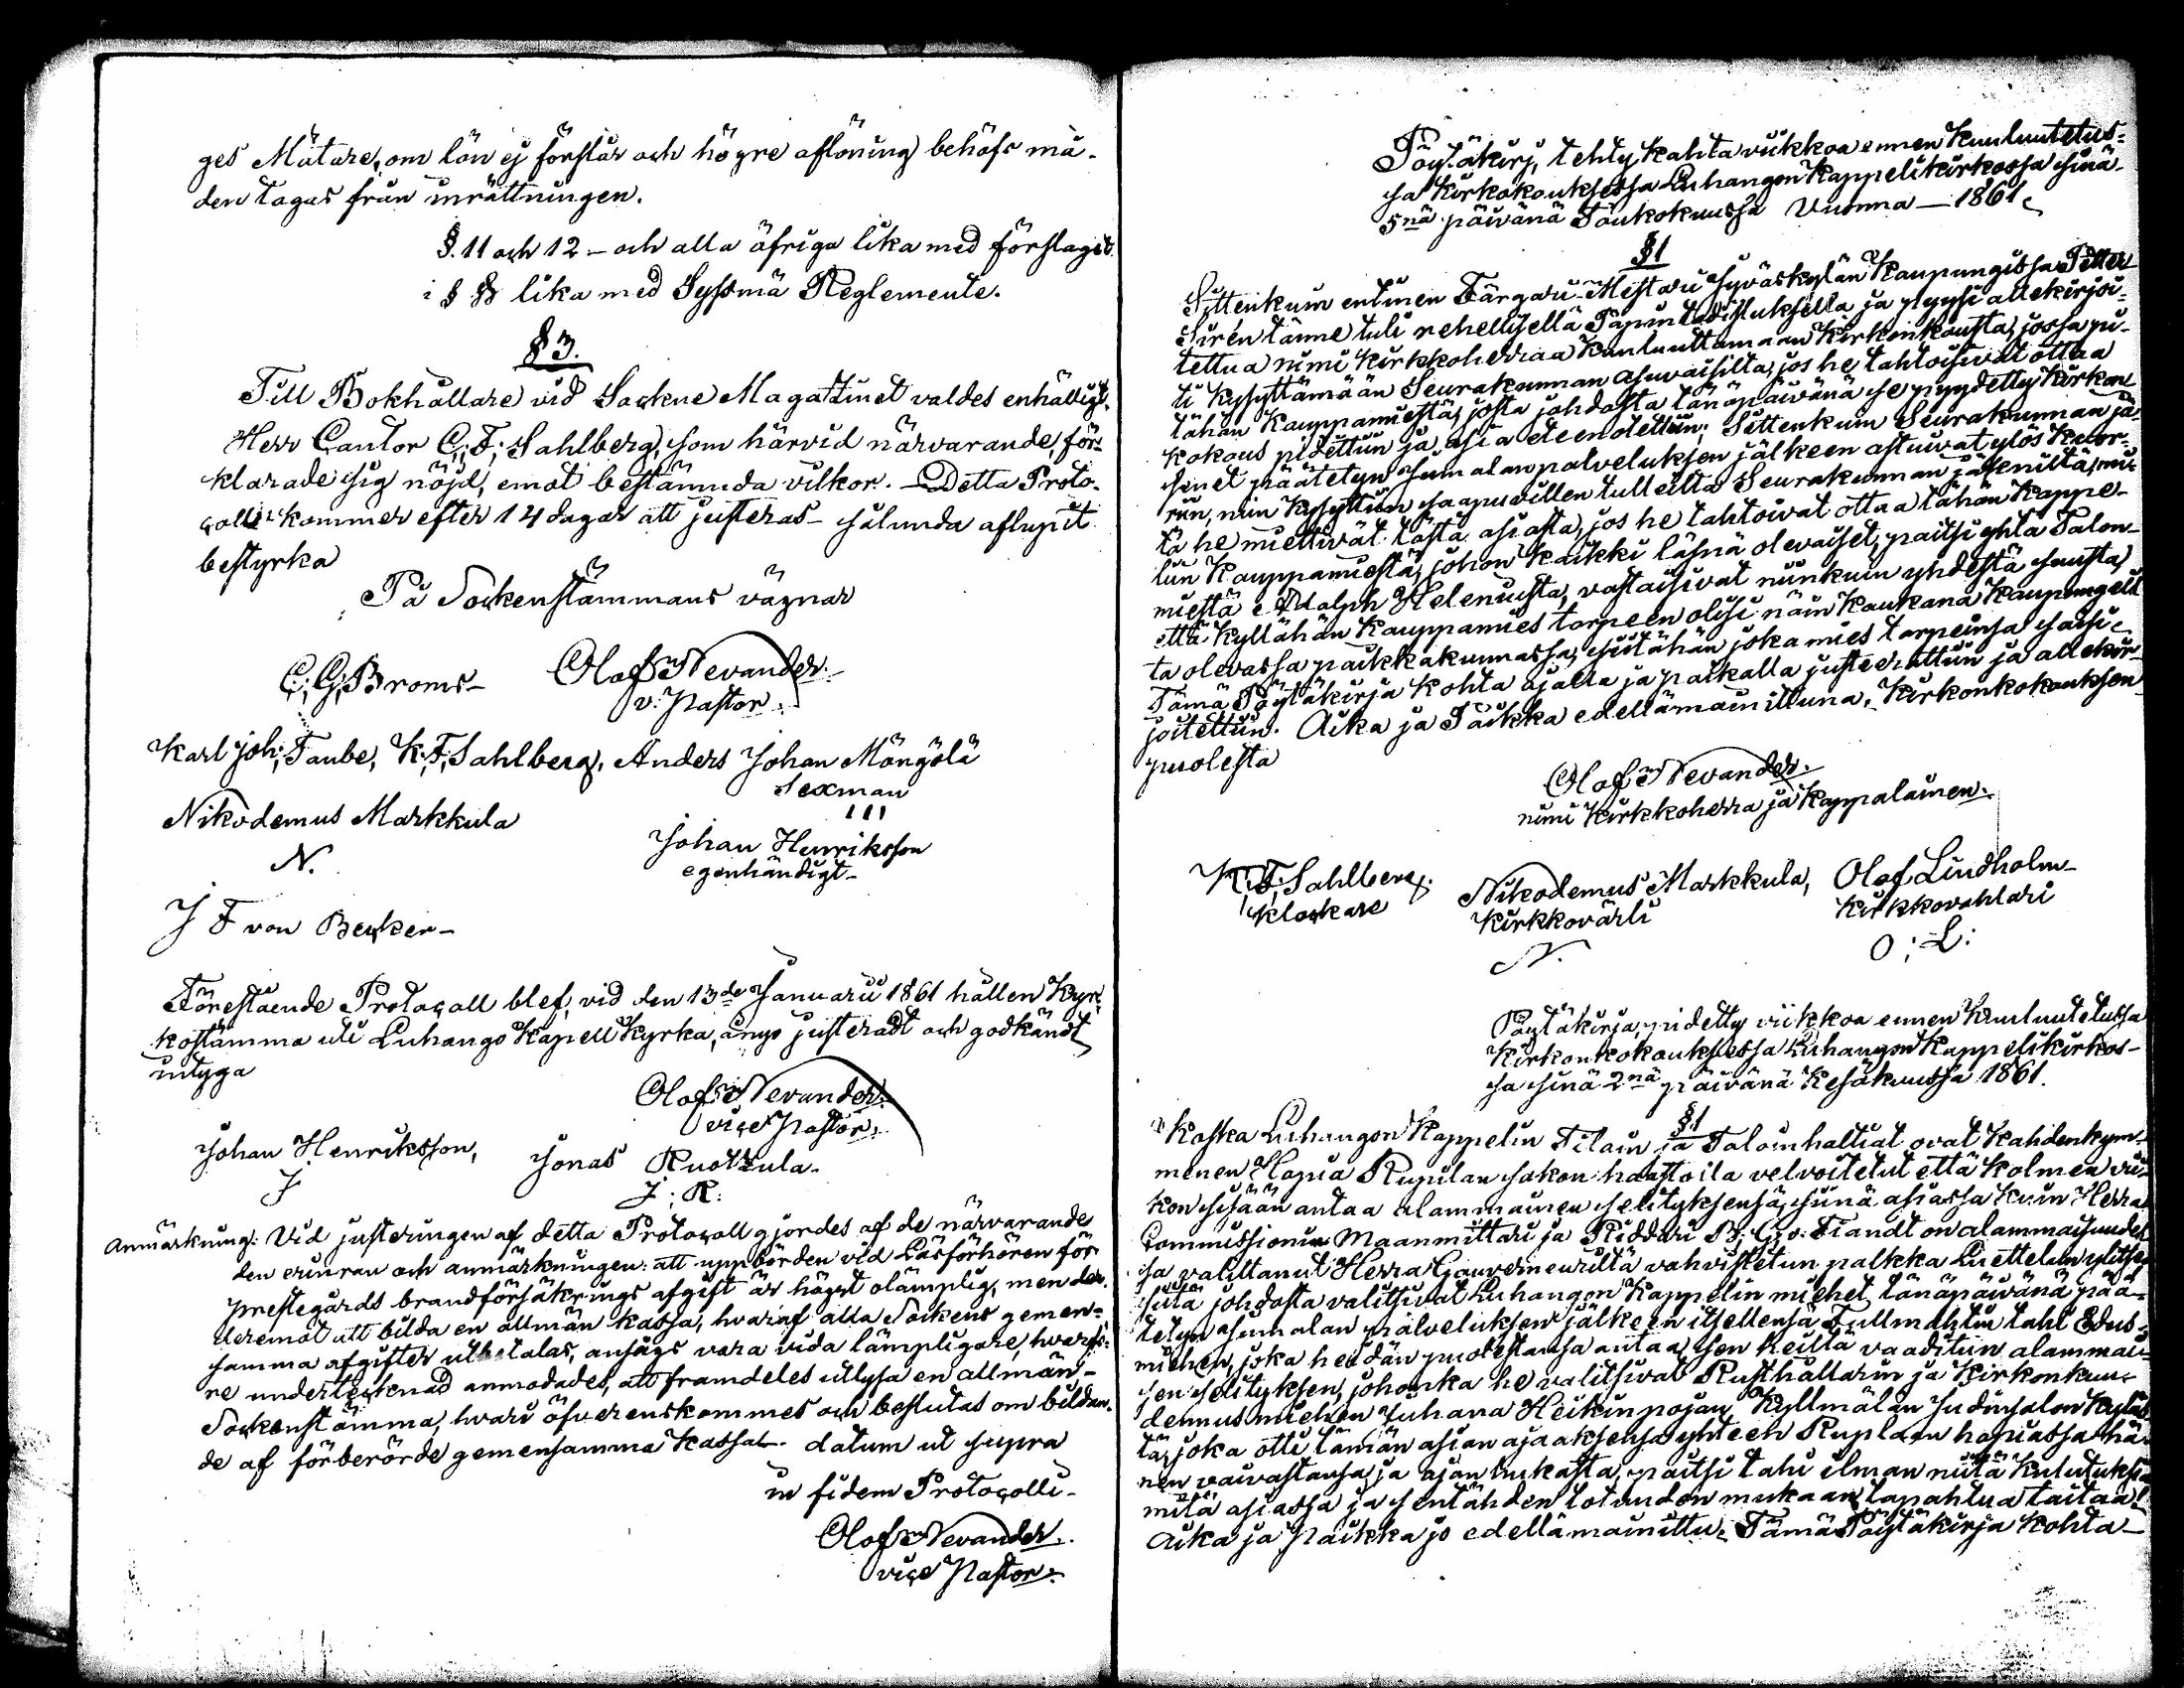 ges Mätare, om lön ej förslår och högre aflöning behöfs må-
den tagas från inrättningen.
§. 11 och 12 – och alla öfriga lika med förslaget
i § § lika med Syssmä Reglemente.
§ 3.
Till Bokhållare vid Sockne Magatzinet valdes enhälligt.
Herr Cantor C; F; Sahlberg, som härvid närvarande, för-
klarade sig nöjd, emot bestämda vilkor. – Detta Proto-
colli kommer efter 14 dagar att justeras – sålunda aflupit
bestyrka
På Sockenstämmans vägnar
C; G; Broms – Olof Nevander.
v. Pastor.
Karl Joh; Taube, K; F; Sahlberg, Anders Johan Möngölä
Sexman
Nikodemus Markkula
Johan Henriksson
N.
egenhändigt –
J F von Becker –
Förestående Protocoll blef, vid den 13de Januarii 1861 hållen Kyr-
kostämma uti Luhango Kapell Kyrka, ånyo justeradt och godkändt
intyga
Olof Nevander.
vice Pastor.
Johan Henriksson, Jonas Ruotzula.
J J; R:
Anmärkning: Vid justeringen af detta Protocoll gjordes af de närvarande
den erinran och anmärkningen: att uppbörden vid Läsförhören för
prestegårds brandförsäkrings afgift är högst olämplig, men der-
deremot att bilda en allmän kassa, hvaraf alla Sockens gemen-
samma afgifter utbetalas, ansågs vara vida lämpligare, hvarför
re undertecknad anmodades, att framdeles utlysa en allmän-
Sockenstämma, hvari öfverenskommes och beslutas om bildan-
de af förberörde gemensamma Kassa – datum ut supra
in fidem Protocolli –
Olof Nevander.
vice Pastor.
Pöytäkirj, tehty kahta viikkoa ennen Kuuluutetus-
sa Kirkokouksessa Luhangon Kappelikirkossa sinä
5nä päivänä Toukokuussa Vuonna – 1861.
§ 1
Sittenkuin entinen Färgari-Mestari Jyväskylän Kaupungissa Petter
Siren tänne tuli rehellisellä Papin todistuksella ja pyysi allekirjoi-
tettua nimi Kirkkoherraa Kuuluuttamaan Kirkonkousta, jossa pi-
ti Kysyttämään Seurakunnan asuvaisilta, jos he tahtoisivat ottaa
tähän Kauppamiestä, josta johdosta tänäpäivänä se pyydetty Kirkon
kokous pidettiin ja asia eteenotettiin; Sittenkuin Seurakunnan jä-
senet päätetyn Jumalanpalveluksen jälkeen astuivat ylös Kuor-
riin, niin Kysyttiin saapuvillen tulleilta Seurakunnan jäseniltä, mi-
tä he miettivät tästä asiasta, jos he tahtoivat ottaa tähän Kappe-
liin Kauppamiestä, johon Kaikki läsnä olevaiset, paitsi yhtä Talon-
miestä Adolph Heleniusta, vastaisivat niinkuin yhdestä suusta,
että Kyllähän Kauppamies tarpeen olisi näin Kaukana Kaupungeis-
ta olevassa paikkakunnassa, siitähän joka mies tarpeinsa saisi.
Tämä Pöytäkirja Kohta ajalla ja paikalla justeerattiin ja allekir-
joitettiin. Aika ja Paikka edellämainittuna, Kirkonkokouksen
puolesta
Olof Nevander.
nimi Kirkkoherra ja Kappalainen.
K; F; Sahlberg. Nikodemus Markkula, Olof Lindholm –
Klockare Kirkkovärti Kirkkovahtari
N. O; L:
Pöytäkirja, pidetty viikkoa ennen Kuuluutetussa
Kirkonkokouksessa Luhangon Kappelikirkos-
sa sinä 2nä päivänä Kesäkuussa 1861.
§ 1
Koska Luhangon Kappelin Tilain ja Taloinhaltiat ovat Kahdenkym-
menen Hopia Ruplan sakon haastoila velvoitetut että Kolmen vii-
kon sisään antaa alammaisen selityksensä, siinä asiassa kuin Herra
Commissioni Maanmittari ja Riddari B; G; v: Fiandt on alammaisuudes-
sa valittanut Herra Gauverneuriltä vahvistetun palkka Luettelon ylitse,
siitä johdosta valitsivat Luhangon Kappelin miehet tänäpäivänä pää-
tetyn Jumalan palveluksen jälkeen itsellensä Fullmahtin tahi Edus-
miehen, joka heidän puolestansa antaa sen keiltä vaaditun alammai-
sen selityksen, johonka he valitsivat Rusthållarin ja Kirkonkuu-
dennusmiehen Juhana Heikinpojan Kyllmälän Judinsalon Kyläs-
tä, joka otti tämän asian ajaaksensa yhteen Ruplaan hopiassa hä-
nen vaivastansa ja ajan hukasta, paitsi tahi ilman niitä Kulutuksia
mitä asiassa ja sentähden totuuden mukaan tapahtua taitaa!
Aika ja paikka jo edellämainittu. Tämä Pöytäkirja Kohta –